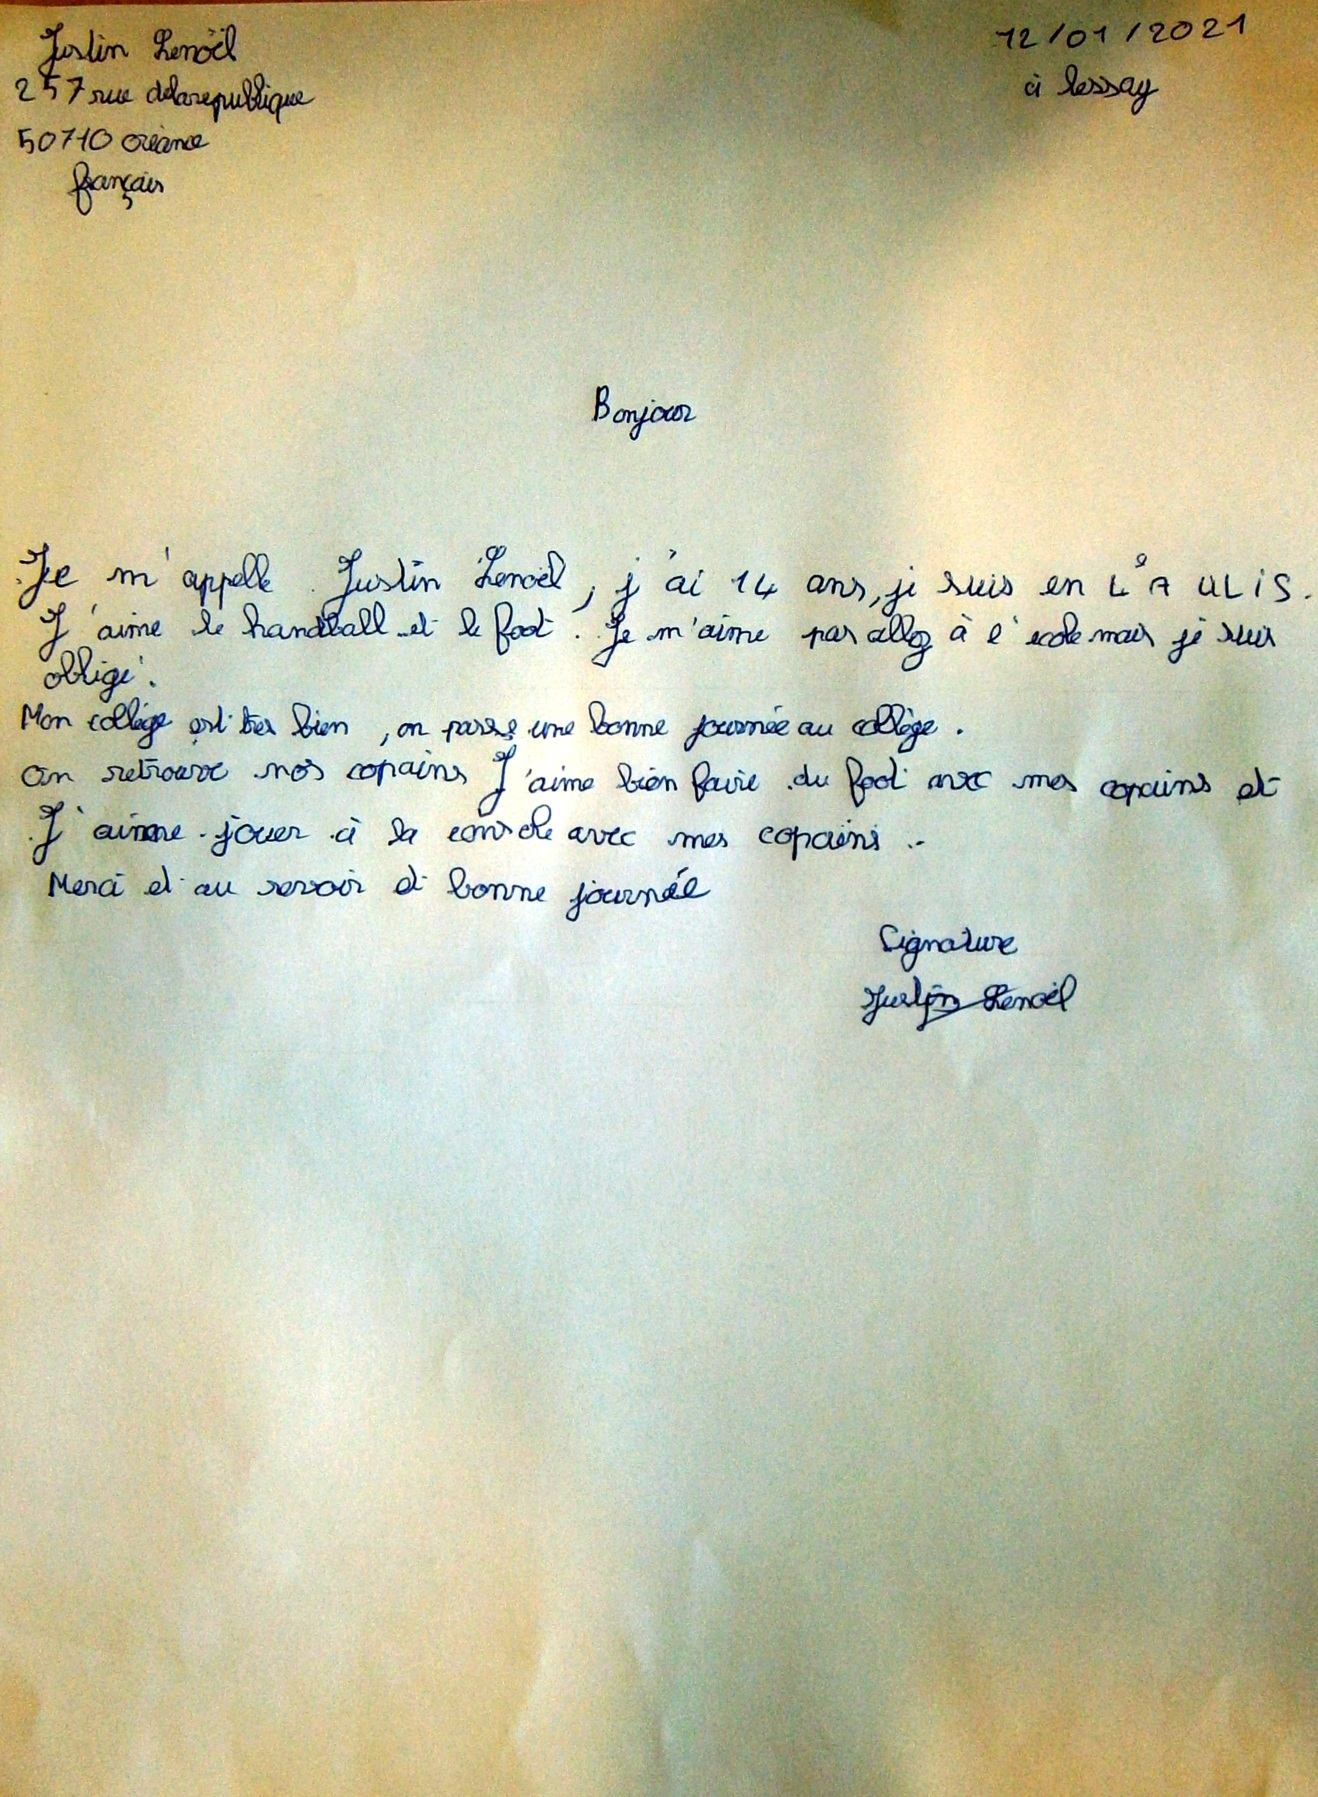 Justin Lenoël
257 rue delarepublique
50710 créance
français
12/01/2021
à lessay
Bonjour
Je m'appelle Justin Lenoël, j'ai 14 ans, je suis en 4°A ULiS.
J'aime le handball et le foot. Je m'aime pas allez à l'ecole mais je suis
obligé.
Mon collége est tres bien, on passe une bonne journée au collège.
on retrouve nos copains J'aime bien faire du foot avec mes copains et
J'aime jouer à la console avec mes copains..
Merci et au revoir et bonne journée
Signature
Justin Lenoël